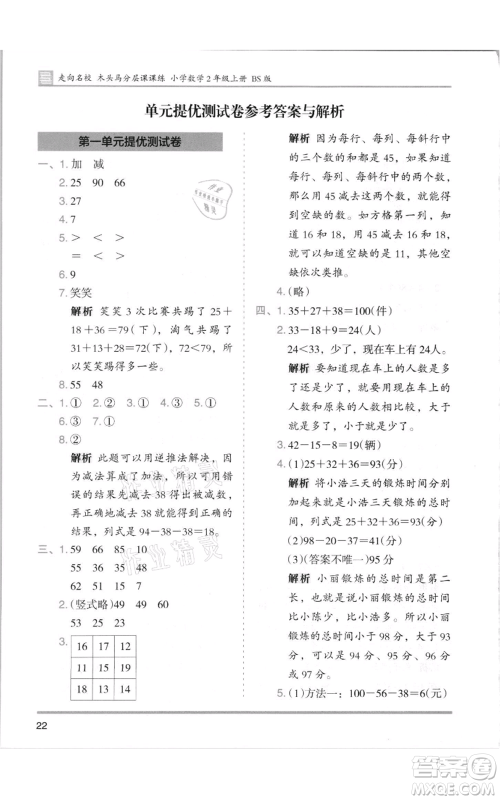 走向名校 木头马分层课课练 小学数学2年级上册 BS版
单元提优测试卷参考答案与解析
第一单元提优测试卷
一、1. 加 减
2. 25 90 66
3. 27
4. 7
5. > < > = <
6. 9
7. 笑笑
解析 笑笑3次比赛共踢了25+
18+36=79(下)，淘气共踢了
31+13+28=72(下)，79>72，
所以笑笑踢得多一些。
8. 55 48
二、1. ① 2. ② 3. ① 4. ② 5. ②
6. ③ 7. ①
8. ②
解析 此题可以用逆推法解决，因
为减法算成了加法，所以可以用错
误的结果先减去38得出被减数，
再用被减数减去38就能得到正确
的结果，列式是94-38-38=18。
三、1. 59 66 85 10
55 35 35 48
62 51 15 7
2. (竖式略)49 49 60
53 25 23
3.
16 17 12
11 15 19
18 13 14
解析 因为每行、每列、每斜行中
的三个数的和都是45，所以如果
知道每行、每列、每斜行中的两个数，
那么用45减去这两个数，就能得
到空缺的数。如方格第一行中，知
道16和17，用45减去16，再减去
17，就可知道空缺的数是12，其他
空缺依次类推。
4. (略)
四、1. 35+27+38=100(件)
2. 33-18+9=24(人)
24<33，少了，现在车上有24人。
解析 要知道现在车上的人数是多
了还是少了，就要把现在车上的
人数与原来车上的人数进行比
较，比原来的人数多，就是多了，比
原来的人数少，就是少了。
3. 42-15+19=46(辆)
4. (1)25+32+36=93(分)
解析 根据题意，将小浩三天锻炼
的时间相加就是小浩三天锻炼的总
时间，列式为25+32+36=93(分)。
(2)98-20-37=41(分)
(3)(答案不唯一)95分
解析 小丽锻炼的总时间是第二
长，也就是小丽锻炼的总时间
比小陈少，比小浩多，所以小丽
的总时间在93分和98分之间，
因此小丽锻炼的总时间可能是
94分、95分、96分或97分。
5. (1)方法一：100-56-38=6(元)
22